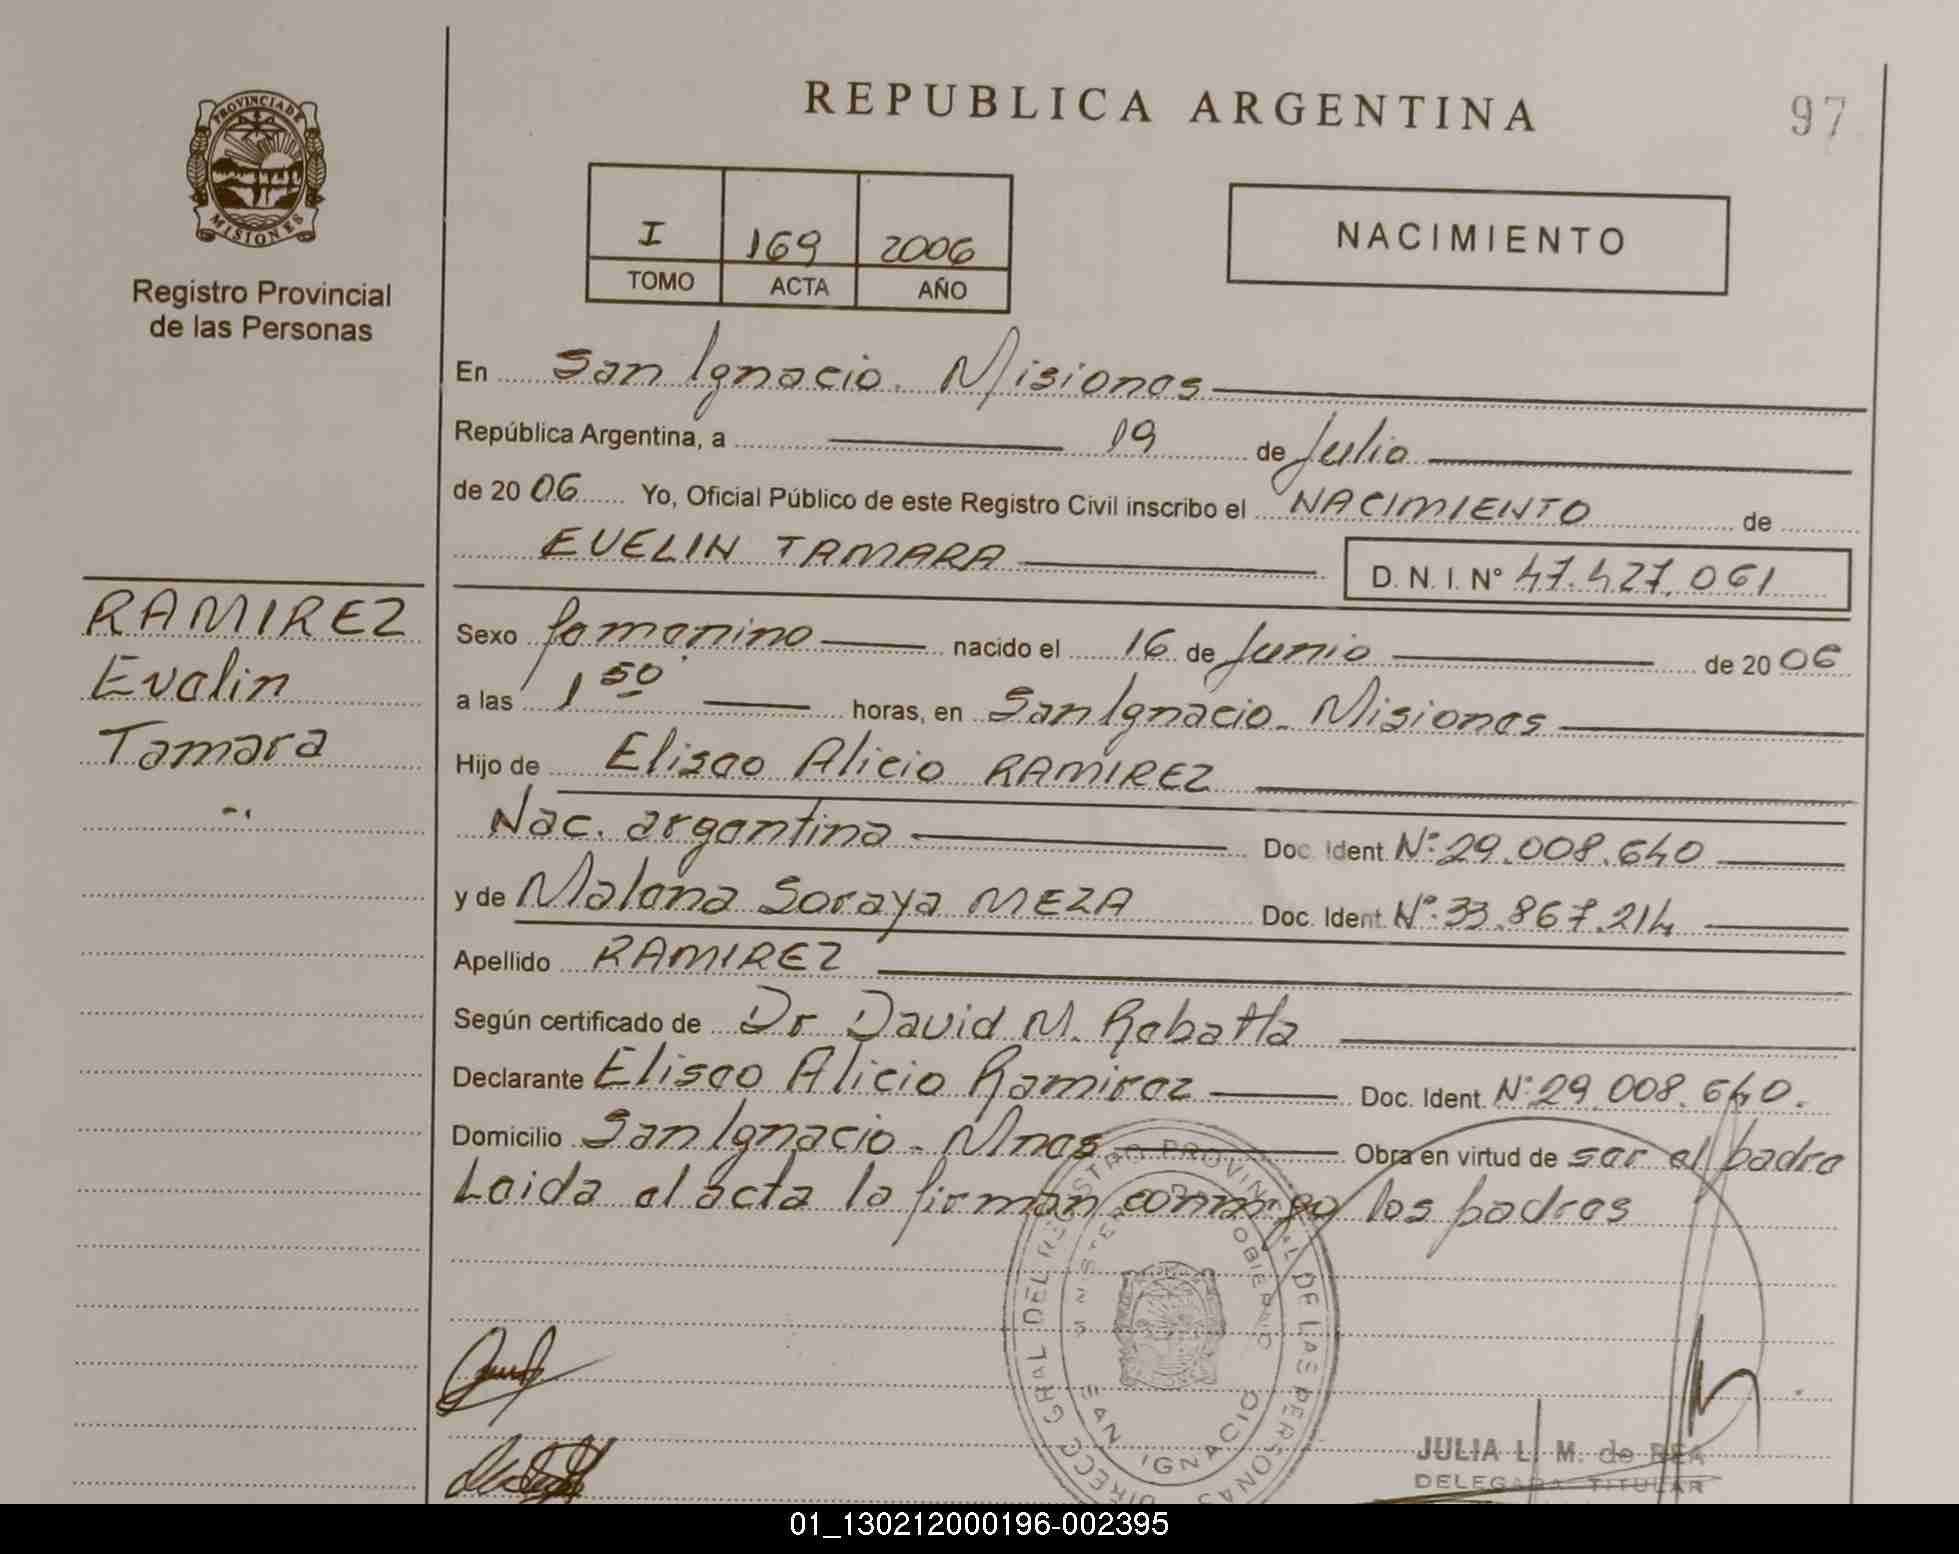 REPUBLICA ARGENTINA
97
PROVINCIA DE
MISIONES
Registro Provincial
de las Personas
I 169 2006
TOMO ACTA AÑO
NACIMIENTO
En San Ignacio. Misiones
República Argentina, a 19 de Julio
de 20 06 Yo, Oficial Público de este Registro Civil inscribo el NACIMIENTO de
EVELIN TAMARA D. N. I. N° 47.427.061
RAMIREZ
Evelin
Tamara
Sexo femenino nacido el 16 de Junio de 20 06
a las 1 50 horas, en San Ignacio. Misiones
Hijo de Eliseo Alicio RAMIREZ
Nac. argentina Doc. Ident. N°: 29.008.640
y de Malena Soraya MEZA Doc. Ident. N°: 33.867.214
Apellido RAMIREZ
Según certificado de Dr David M.
Declarante Eliseo Alicio Ramirez Doc. Ident. N°: 29.008.640.
Domicilio San Ignacio - Mnes Obra en virtud de ser el padre
Leida el acta la firman conmigo los padres
DIRECC GRAL DEL REGISTRO PROVINCIAL DE LAS PERSONAS
SAN IGNACIO
JULIA L. M. de REA
DELEGADA TITULAR
01_130212000196-002395